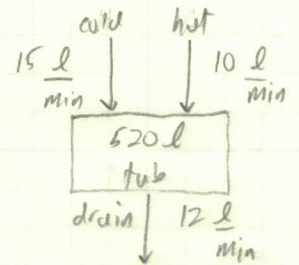 cold hot
15 l/min 10 l/min
520 l
tub
drain 12 l/min